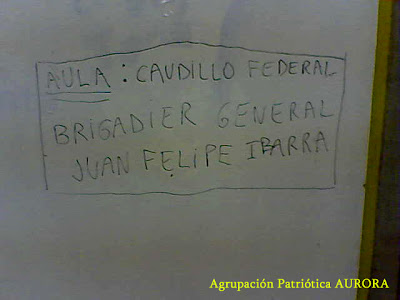 AULA : CAUDILLO FEDERAL
BRIGADIER GENERAL
JUAN FELIPE IBARRA
Agrupación Patriótica AURORA